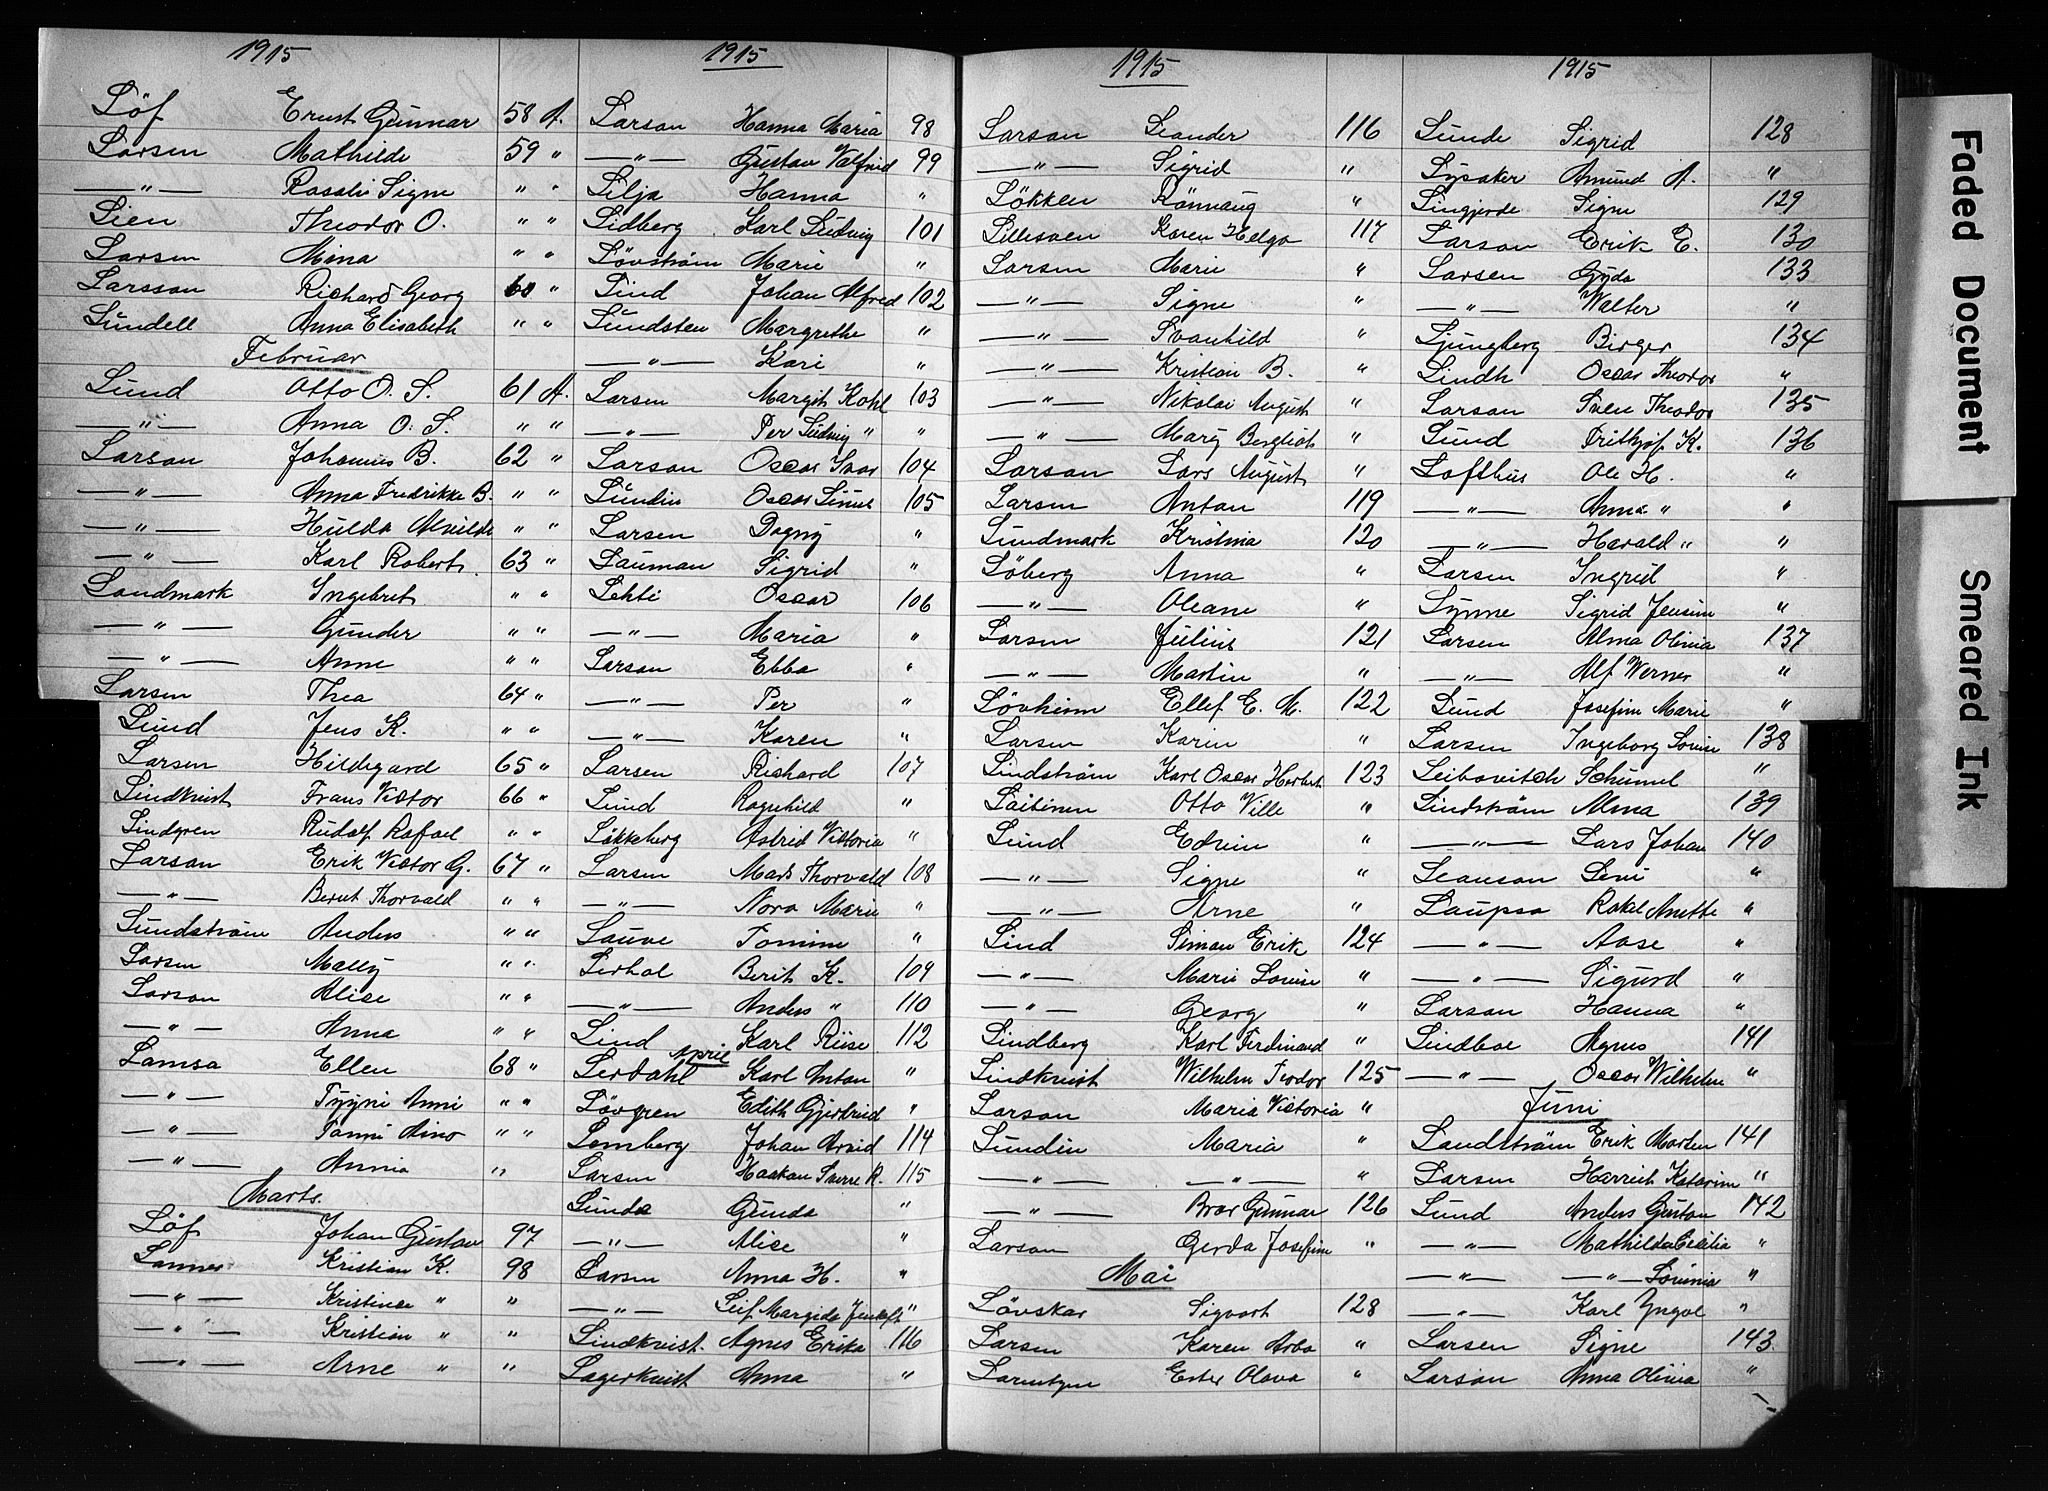 1915
Löf Ernst Gunnar 58 A.
Larsen Mathilde 59 "
—"— Rosalie Signe " "
Lien Theodor O. " "
Larsen Mina " "
Larsson Richard Georg 60 "
Lundell Anna Elisabeth " "
Februar
Lund Otto O. S. 61 A.
—"— Anna O. S. " "
Larson Johannes B. 62 "
—"— Anna Fredrikke B. " "
—"— Hulda Alvilde " "
—"— Karl Robert 63 "
Landmark Ingebret " "
—"— Gunder " "
—"— Anne " "
Larsen Thea 64 "
Lund Jens K. " "
Larsen Hildegard 65 "
Lindkvist Frans Victor 66 "
Lindgren Rudolf Rafael " "
Larson Erik Victor G. 67 "
—"— Bernt Thorvald " "
Lundström Anders " "
Larsen Mally " "
Larson Alise " "
—"— Anna " "
Lamsa Ellen 68 "
—"— Tyyni Anni " "
—"— Tanni Aino " "
—"— Annia "
Marts.
Löf Johan Gustav 97
Lannes Kristian K. 98
—"— Kristince " "
—"— Kristian " "
—"— Arne " "
1915
Larson Hanna Maria 98
—"— Gustav Valfrid 99
Lilja Hanna "
Lidberg Karl Ludvig 101
Lövström Marie "
Lind Johan Alfred 102
Lundsten Margrethe "
—"— Kari "
Larsen Margit Kohl 103
—"— Per Ludvig " "
Larson Oscar Ivar 104
Lundin Oscar Linus 105
Larsen Dagny "
Lauman Sigrid "
Lehti Oscar 106
—"— Maria "
Larson Ebba "
—"— Per "
—"— Karen "
Larsen Richard 107
Lund Ragnhild "
Løkkeberg Astrid Viktoria "
Larsen Mads Thorvald 108
—"— Nora Marie "
Lauve Tomine "
Lerhol Berit K. 109
—"— Anders " 110
Lind Karl Riise 112
April
Lerdahl Karl Anton "
Lövgren Edith Gjertrud "
Lemberg Johan Arvid 114
Larsen Haakon Sverre R. 115
Lunda Gunda "
—"— Alise "
Larsen Anna H. "
—"— Leif Margido "
Lindkvist Agnes Erika 116
Lagerkvist Anna "
1915
Larson Leander 116
—"— Sigrid "
Løkken Rønnaug "
Lillesven Karen Helga 117
Larsen Marie "
—"— Signe "
—"— Svanhild "
—"— Kristian B. "
—"— Nikolai August "
—"— Mary Bergliot "
Larson Lars August "
Larsen Anton 119
Lundmark Kristina 120
Løberg Anna "
—"— Oleane "
Larsen Julius 121
—"— Martin "
Løvheim Ellef E. M. 122
Larsen Karin "
Lindström Karl Oscar Herbert 123
Laitinen Otto Ville "
Lund Edvin "
—"— Signe "
—"— Arne "
Lind Simon Erik 124
—"— Marie Louise "
—"— Georg "
Lindberg Karl Ferdinand "
Lindkvist Wilhelm Teodor 125
Larson Maria Victoria "
Lundin Maria "
—"— —"— "
—"— Bror Gunnar 126
Larson Gerda Josefine "
Mai
Lövskar Sigvart 128
Larsen Karen Arba "
Ester Olava "
1915
Lunde Sigrid 128
Lysaker Amund A. "
Lingjerde Signe 129
Larson Erik E. 130
Larsen Gyda 133
—"— Walter "
Ljungberg Birger 134
Lindh Oscar Theodor "
Larson Sven Theodor 135
Lund Frithjof K. 136
Lofthus Ole H. "
—"— Anna " "
—"— Harald " "
Larsen Ingrid "
Lynne Sigrid Jensine "
Larsen Alma Olivia 137
—"— Alf Werner "
Lund Josefine Marie "
Larsen Ingeborg Louise 138
Leibovitch Schumel "
Lindström Alma 139
—"— Lars Johan 140
Leanson Leni "
Laupsa Rakel Anette "
—"— Aase "
—"— Sigurd "
Larson Hanna "
Lindboe Agnes 141
—"— Oscar Wilhelm "
Juni
Landström Erik Morten 141
Larsen Harriet Katarine "
Lund Anders Gustav 142
—"— Mathilda Cecilia "
—"— —"— Lovinia "
—"— Karl Yngve "
Larsen Signe 143
Larson Anna Olivia "
Faded Document
Smeared Ink